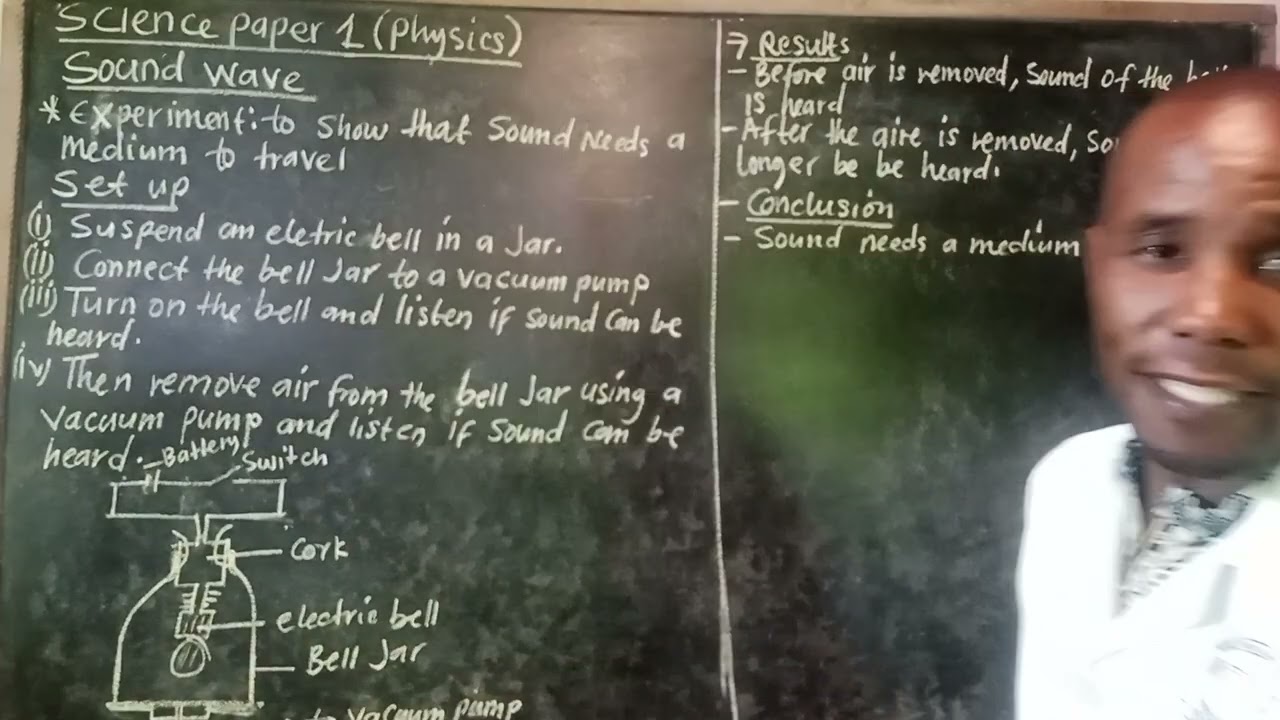 Science paper 1 (Physics)
Sound wave
* Experiment: to show that sound needs a
medium to travel
Set up
(i) Suspend an eletric bell in a Jar.
(ii) Connect the bell Jar to a vacuum pump
(iii) Turn on the bell and listen if sound can be
heard.
(iv) Then remove air from the bell Jar using a
vacuum pump and listen if sound can be
heard.
Battery
Switch
Cork
electric bell
Bell Jar
to vacuum pump
→ Results
- Before air is removed, sound of the
is heard
- After the aire is removed,
longer be be heard.
- Conclusion
- Sound needs a medium